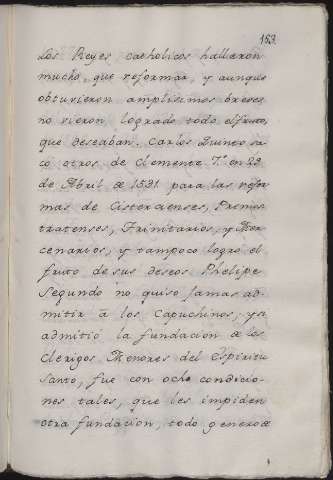 153
Los Reyes catholicos hallaron
mucho, que reformar, y aunque
obtuvieron amplisimos breves
no vieron logrado todo el fruto,
que deseaban. Carlos Quinto sa-
có otros de Clemente 7.º en 29
de Abril de 1531 para las refor
mas de Cistercienses, Premos
tratenses, Trinitarios, y Mer
cenarios, y tampoco logró el
fruto de sus deseos Phelipe
Segundo no quiso jamas ad-
mitir à los Capuchinos, y si
admitió la fundacion de los
Clerigos Menores del Espiritu
Santo, fue con ocho condicio-
nes tales, que les impiden
otra fundacion, todo genero de